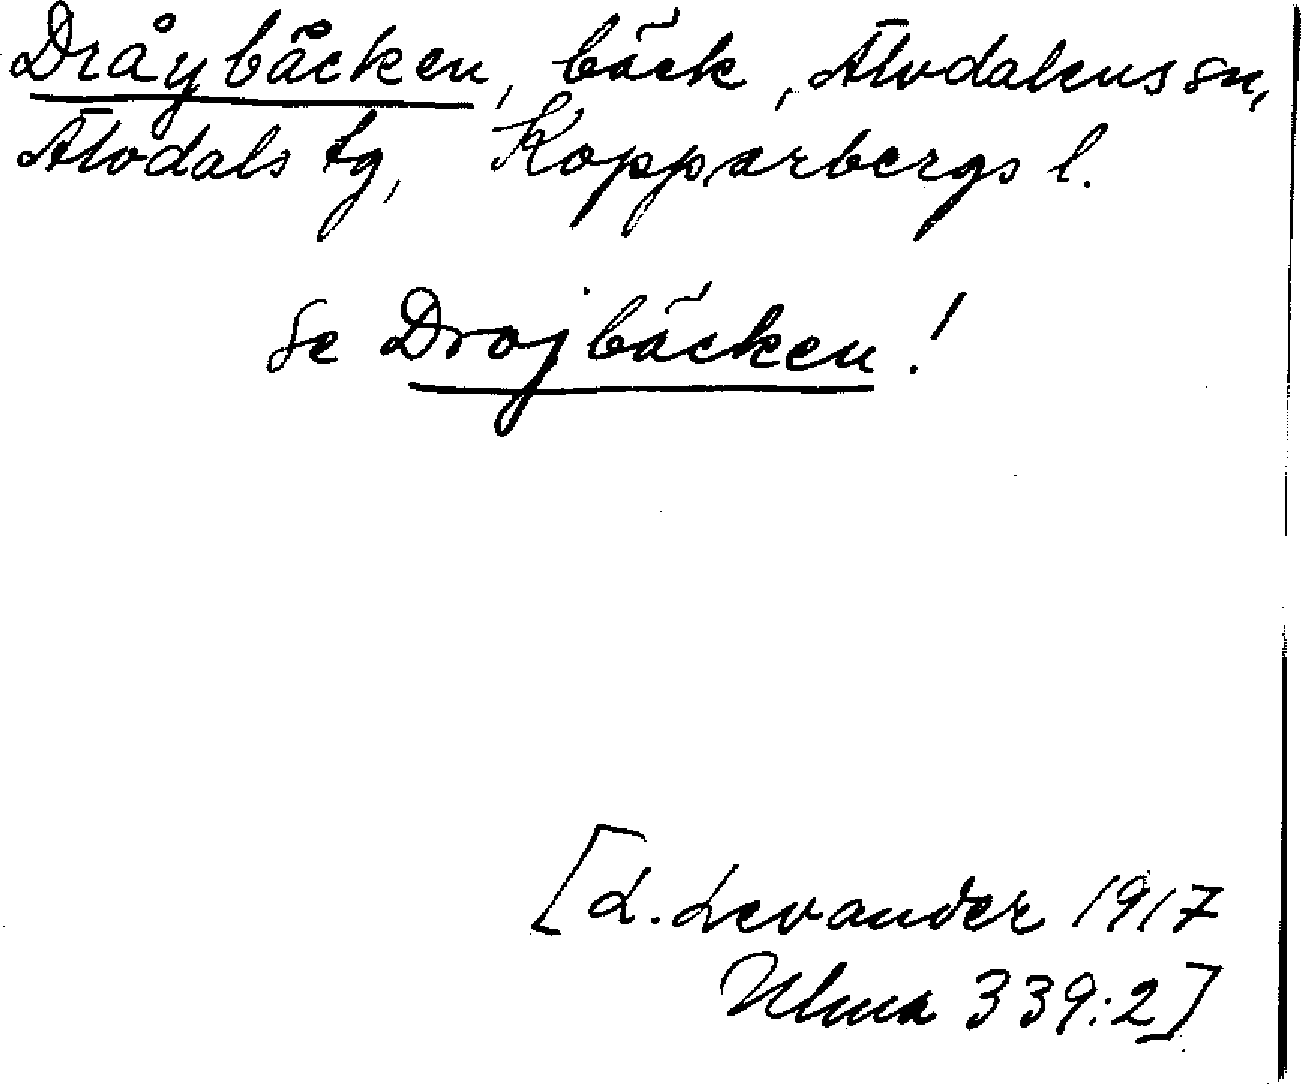 Dråybäcken, bäck, Älvdalens sn,
Älvdals tg, Kopparbergs l.
Se Drojbäcken!
[L. Levander 1917
Ulma 339:2]